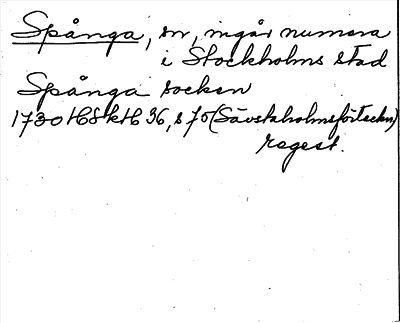 Spånga, sn, ingår numera
i Stockholms stad
Spånga socken
1730 HSH kt 36, s 75 (Sävstaholmsförteckn)
regest.